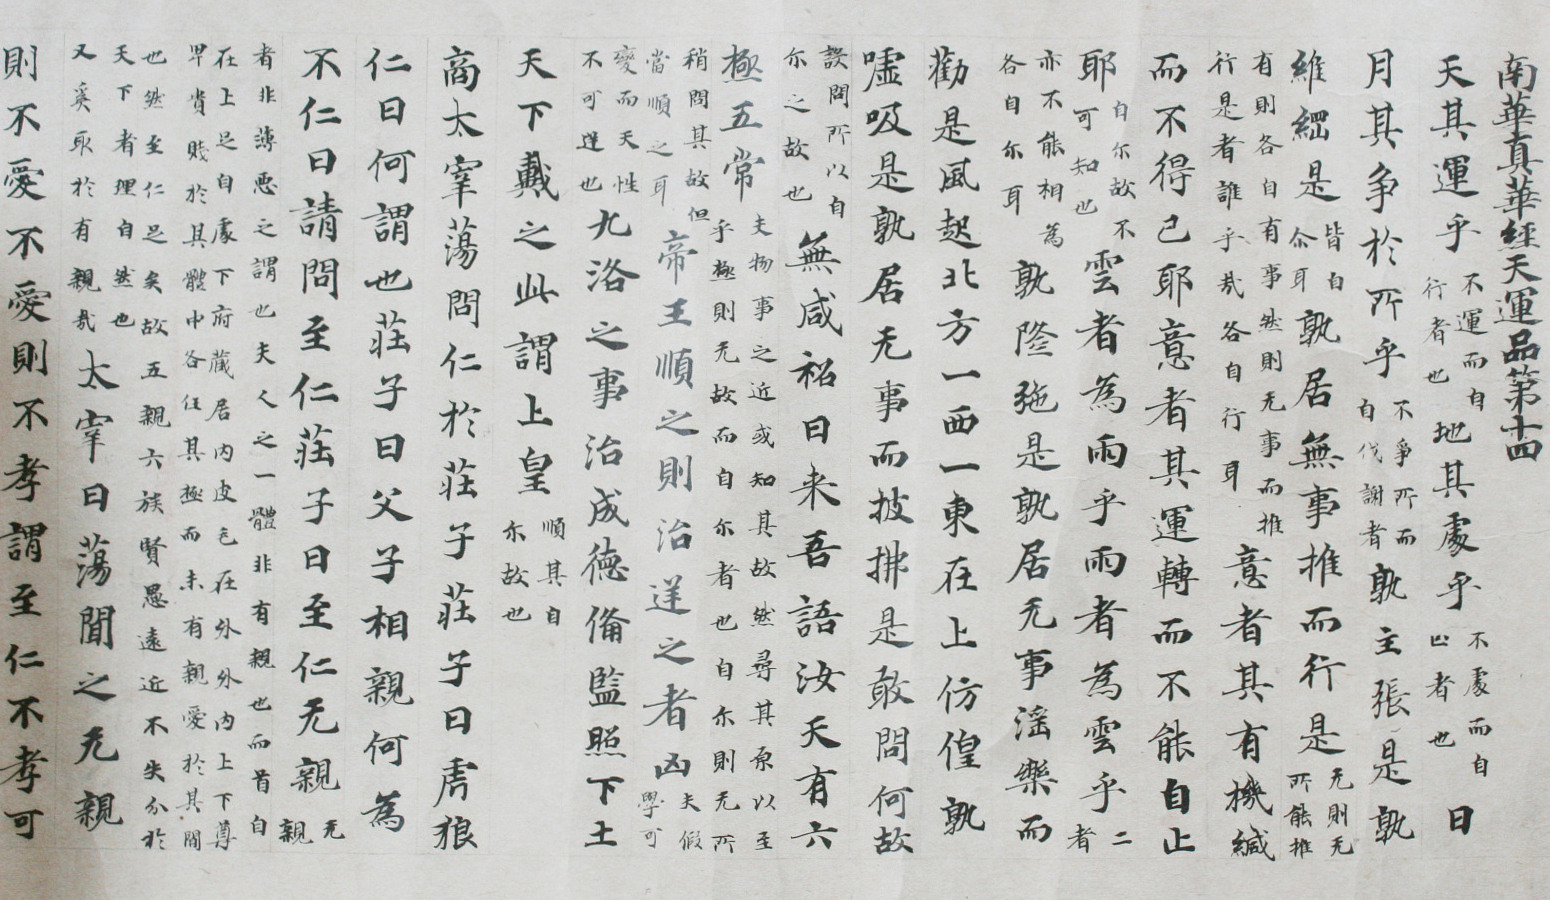 南華真華經天運品第十四
天其運乎不運而自行者也地其處乎不處而自止者也日
月其争於所乎不争所而自代謝者孰主張是孰
維綱是皆自尒耳孰居無事推而行是无則无所能推
有則各自有事然則无事而推行是者誰乎哉各自行耳意者其有機緘
而不得已耶意者其運轉而不能自止
耶自尓故不可知也雲者為雨乎雨者為雲乎二者
亦不能相為各自尓耳孰隆施是孰居无事滛樂而
勸是風起北方一西一東在上仿偟孰
嘘吸是孰居无事而披拂是敢問何故
設問所以自尓之故也無咸祒曰来吾語汝天有六
極五常夫物事之近或知其故然尋其原以至乎極則无故而自尓者也自尓則无所
稍問其故但當順之耳帝王順之則治逆之者凶夫假學可
變而天性不可逆也九洛之事治成德俻監照下土
天下戴之此謂上皇順其自尓故也
商太宰蕩問仁於莊子莊子曰虎狼
仁曰何謂也莊子曰父子相親何為
不仁曰請問至仁莊子曰至仁无親无親
者非薄悪之謂也夫人之一體非有親也而首自
在上足自處下府藏居内皮毛在外外内上下尊
卑貴賤於其體中各任其極而未有親愛於其間
也然至仁足矣故五親六族賢愚遠近不失分於
天下者理自然也又奚取於有親哉太宰曰蕩聞之无親
則不愛不愛則不孝謂至仁不孝可